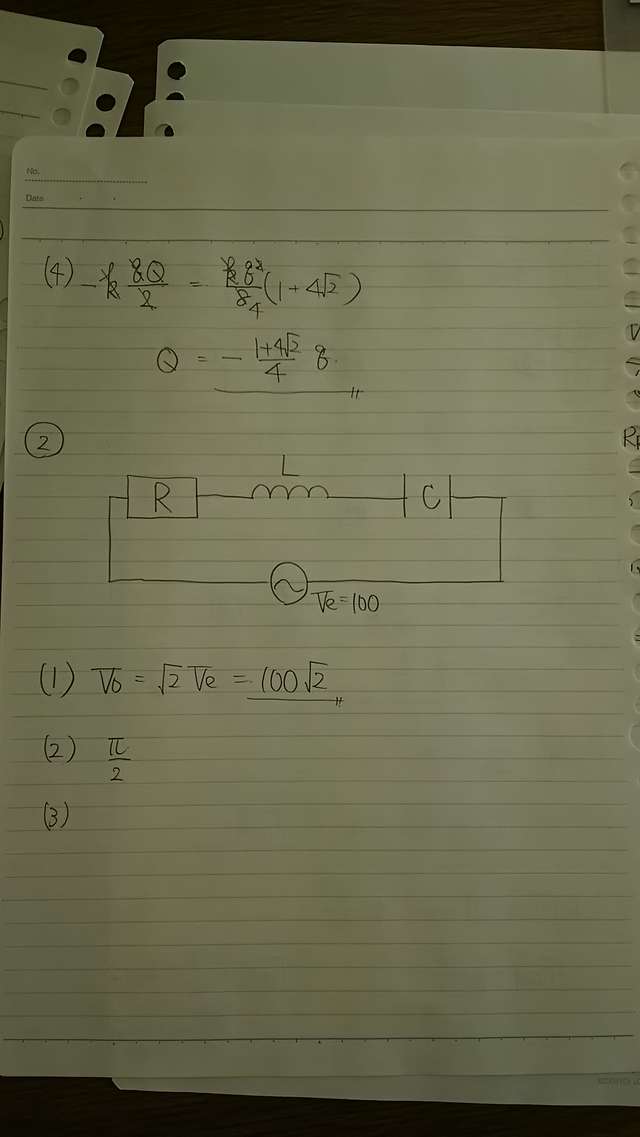 No.
Date
(4) -k qQ/2 = kq²/8 4 (1+4√2)
Q = - 1+4√2/4 q
② 
L
R
C
Ve=100
(1) V0 = √2 Ve = 100√2
(2) π/2
(3)